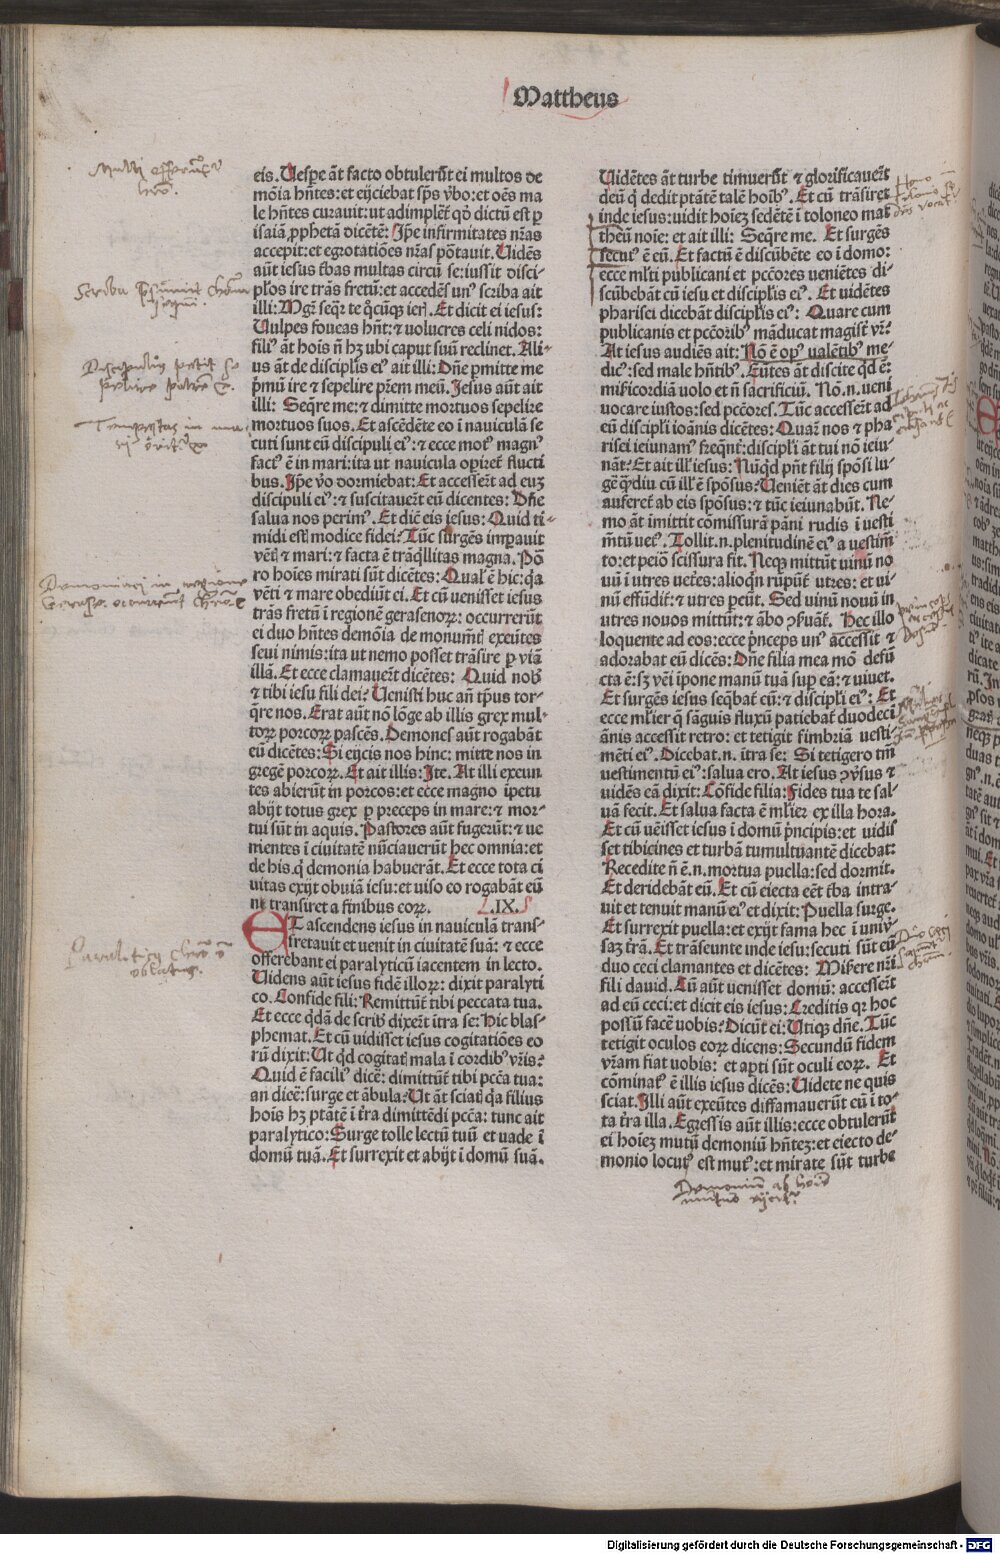 Mattheus
eis. Uespe āt facto obtulerūt ei multos de
mōia hn̄tes: et eijciebat sp̄s v̄bo: et oēs ma
le hn̄tes curauit: ut adimplet̄ qd̄ dictū est p
isaiā ꝓphetā dicētē: Ip̄e infirmitates nr̄as
accepit: et egrotatiōes nr̄as pōtauit. Uidēs
aūt iesus t̄bas multas circū se: iussit disci-
plos ire trās fretū: et accedēs unꝰ scriba ait
illi: Mgr̄ seqr̄ te q̄cūqꝫ ier̄. Et dicit ei iesus:
Uulpes foueas hn̄t: ⁊ uolucres celi nidos:
filiꝰ āt hois ñ hꝫ ubi caput suū reclinet. Ali-
us āt de disciplis eiꝰ ait illi: Dn̄e pmitte me
p̄mū ire ⁊ sepelire pr̄em meū. Jesus aūt ait
illi: Seqr̄e me: ⁊ dimitte mortuos sepelire
mortuos suos. Et ascēdēte eo ī nauiculā se
cuti sunt eū discipuli eiꝰ: ⁊ ecce motꝰ magnꝰ
factꝰ ē in mari: ita ut nauicula opiret̄ flucti
bus. Ip̄e v̄o dormiebat: Et accesser̄t ad euꝫ
discipuli eiꝰ: ⁊ suscitauer̄t eū dicentes: Dn̄e
salua nos perimꝰ. Et dic̄ eis iesus: Quid ti-
midi est̄ modice fidei? Tūc surgēs imꝑauit
vēt̄ ⁊ mari: ⁊ facta ē trāq̄llitas magna. Pō
ro hoies mirati sūt dicētes: Qualꝰ ē hic: q̄a
vēti ⁊ mare obediūt ei. Et cū uenisset iesus
trās fretū ī regionē gerasenoꝝ: occurrerūt
ei duo hn̄tes demōia de monumt̄ exeūtes
seui nimis: ita ut nemo posset trāsire ꝑ viā
illā. Et ecce clamauer̄t dicētes: Quid nobꝭ
⁊ tibi iesu fili dei? Uenisti huc añ tp̄us tor-
q̄re nos. Erat aūt nō lōge ab illis grex mul-
toꝝ porcoꝝ pascēs. Demones aūt rogabāt
eū dicētes: Si eijcis nos hinc: mitte nos in
gregē porcoꝝ. Et ait illis: Ite. At illi exeun
tes abierūt in porcos: et ecce magno īpetu
abijt totus grex ꝑ preceps in mare: ⁊ mor-
tui sūt in aquis. Pastores aūt fugerūt: ⁊ ue
nientes ī ciuitatē nūciauerūt hec omnia: et
de his q̄ demonia habuerāt. Et ecce tota ci
uitas exijt obuiā iesu: et uiso eo rogabāt eū
ut transiret a finibus eoꝝ. .IX.
ET ascendens iesus in nauiculā trans-
fretauit et uenit in ciuitatē suā: ⁊ ecce
offerebant ei paralyticū iacentem in lecto.
Uidens aūt iesus fidē illoꝝ: dixit paralyti
co. Confide fili: Remittūt̄ tibi peccata tua.
Et ecce q̄dā de scribꝭ dixer̄t ītra se: Hic blas-
phemat. Et cū uidisset iesus cogitatiōes eo
rū dixit: Ut qd̄ cogitat̄ mala ī cordibꝰ vr̄is?
Quid ē faciliꝰ dicē: dimittūt̄ tibi pcc̄a tua:
an dicē: surge et ābula? Ut āt sciat̄ q̄a filius
hois hꝫ ptātē ī t̄ra dimittēdi pcc̄a: tunc ait
paralytico: Surge tolle lectū tuū et uade ī
domū tuā. Et surrexit et abijt ī domū suā.
Uidētes āt turbe timuerūt ⁊ glorificauer̄t
deū q̄ dedit ptātē talē hoībꝰ. Et cū trāsiret
inde iesus: uidit hoieꝫ sedētē ī toloneo mat
theū noīe: et ait illi: Seq̄re me. Et surgēs
secutꝰ ē eū. Et factū ē discūbēte eo ī domo:
ecce ml̄ti publicani et pcc̄ores ueniētes di-
scūbebāt cū iesu et discipl̄is eiꝰ. Et uidētes
pharisei dicebāt discipl̄is eiꝰ: Quare cum
publicanis et pcc̄oribꝰ māducat magist̄ vr̄?
At iesus audiēs ait: Nō ē opꝰ ualētibꝰ me-
dicꝰ: sed male hn̄tibꝰ. Eūtes āt discite qd̄ ē:
mīsericordiā uolo et ñ sacrificiū. Nō.n. ueni
uocare iustos: sed pcc̄ores. Tūc accesser̄t ad
eū discipl̄i ioānis dicētes: Quar̄ nos ⁊ pha
risei ieiunamꝰ freq̄nt̄: discipl̄i āt tui nō ieiu-
nāt? Et ait illꝭ iesus: Nūqd̄ pn̄t filij spōsi lu-
gē q̄diu cū illꝭ ē spōsus? Ueniēt āt dies cum
auferet̄ ab eis spōsus: ⁊ tūc ieiunabūt. Ne-
mo āt imittit cōmissurā pāni rudis ī uesti
mt̄ū uetꝰ. Tollit.n. plenitudinē eiꝰ a uestim̄
to: et peiō scissura fit. Neqꝫ mittūt uinū no
uū ī utres uet̄es: alioqn̄ rūpūt̄ utres: et ui-
nū effūdit̄: ⁊ utres peūt. Sed uinū nouū in
utres nouos mittūt: ⁊ ābo ꝯseruāt̄. Hec illo
loquente ad eos: ecce p̄nceps unꝰ accessit ⁊
adorabat eū dicēs: Dn̄e filia mea mō defū
cta ē: sꝫ veī īpone manū tuā sup eā: ⁊ uiuet.
Et surgēs iesus seq̄bat̄ eū: ⁊ discipl̄i eiꝰ: Et
ecce ml̄ier q̄ sāguis fluxū patiebat̄ duodecī
ānis accessit retro: et tetigit fimbriā uesti-
mēti eiꝰ. Dicebat.n. ītra se: Si tetigero tm̄
uestimentū eiꝰ: salua ero. At iesus ꝯv̄sus ⁊
uidēs eā dixit: Cōfide filia: Fides tua te sal-
ua fecit. Et salua facta ē ml̄ier ex illa hora.
Et cū uēisset iesus ī domū p̄ncipis: et uidis
set tibicines et turbā tumultuantē dicebat:
Recedite ñ ē.n. mortua puella: sed dormit.
Et deridebāt eū. Et cū eiecta eēt t̄ba intra-
uit et tenuit manū eiꝰ et dixit: Puella surge.
Et surrexit puella: et exijt fama hec ī univ̄-
saꝫ t̄rā. Et trāseunte inde iesu: secuti sūt eū
duo ceci clamantes et dicētes: Miserere nr̄i
fili dauid. Cū aūt uenisset domū: accesser̄t
ad eū ceci: et dicit eis iesus: Creditis qꝛ hoc
possū facē uobis? Dicūt ei: Utiqꝫ dn̄e. Tūc
tetigit oculos eoꝝ dicens: Secundū fidem
vr̄am fiat uobis: et apti sūt oculi eoꝝ. Et
cōminatꝰ ē illis iesus dicēs: Uidete ne quis
sciat. Illi aūt exeūtes diffamauerūt eū ī to-
ta t̄ra illa. Egressis aūt illis: ecce obtulerūt
ei hoieꝫ mutū demoniū hn̄teꝫ: et eiecto de-
monio locutꝰ est mutꝰ: et mirate sūt turbe
Digitalisierung gefördert durch die Deutsche Forschungsgemeinschaft - DFG